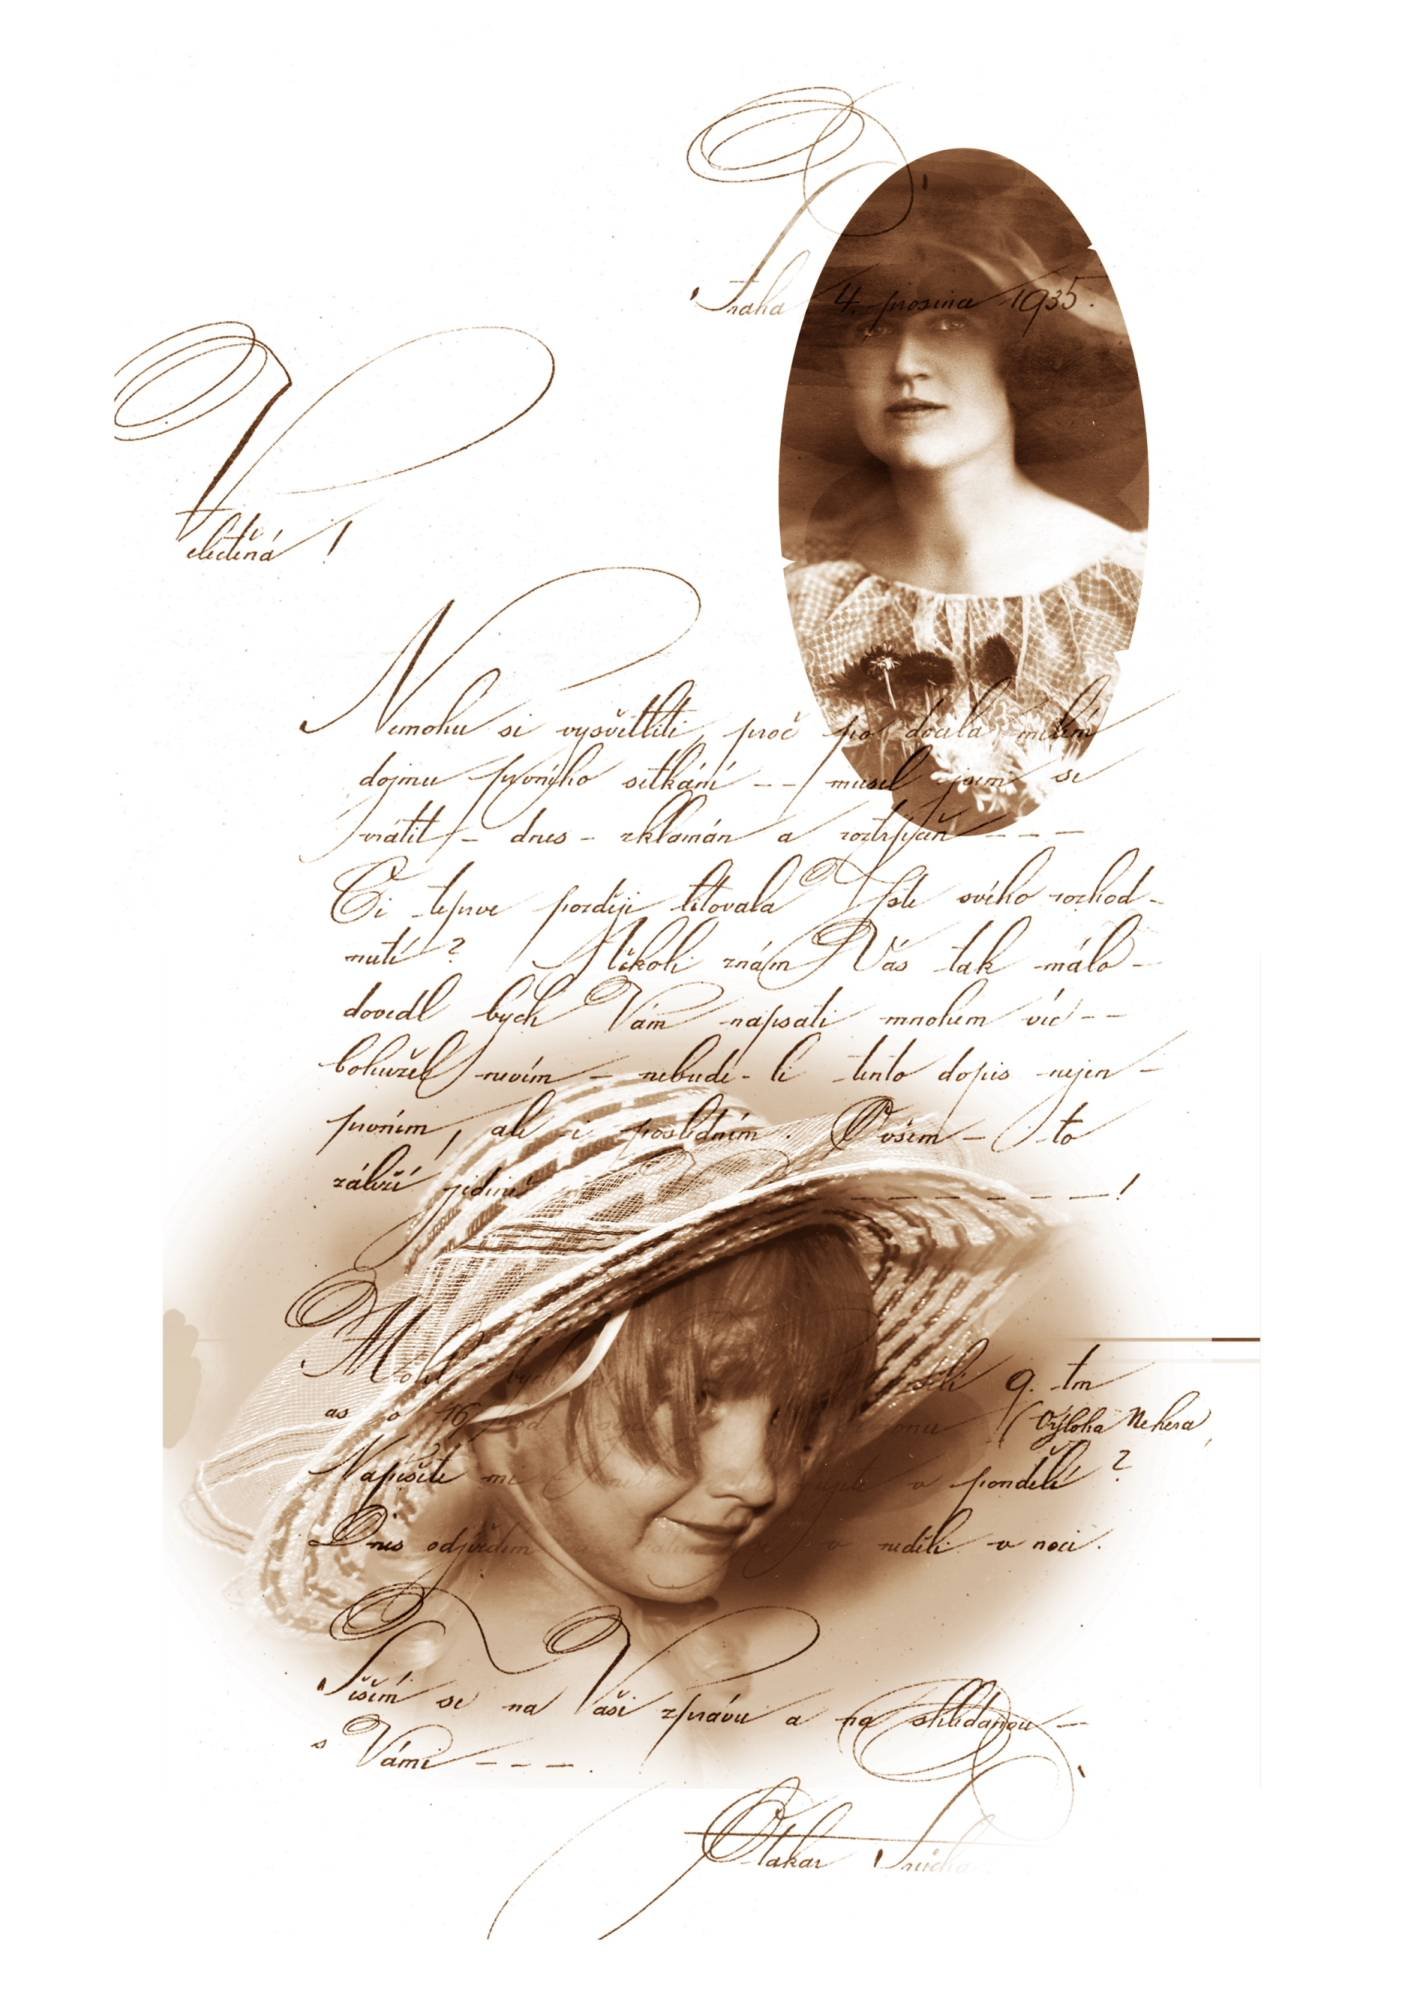 Praha 4. prosince 1935.
Velectěná!
Nemohu si vysvětliti, proč po docela milém
dojmu prvního setkání -- musel jsem se
vrátit - dnes - zklamán a roztrpčen ---
Či teprve později litovala jste svého rozhod-
nutí? Ačkoli znám Vás tak málo -
dovedl bych Vám napsati mnohem víc --
bohužel nevím - nebude-li tento dopis nejen -
prvním, ale i posledním. Ovšem - to
záleží jedině !
bych 9. tm
as o 16 (výloha Nehera,
Napíšete mi v pondělí?
Dnes odjíždím v neděli v noci.
Těším se na Vaši zprávu a na shledanou -
s Vámi ---.
Otakar